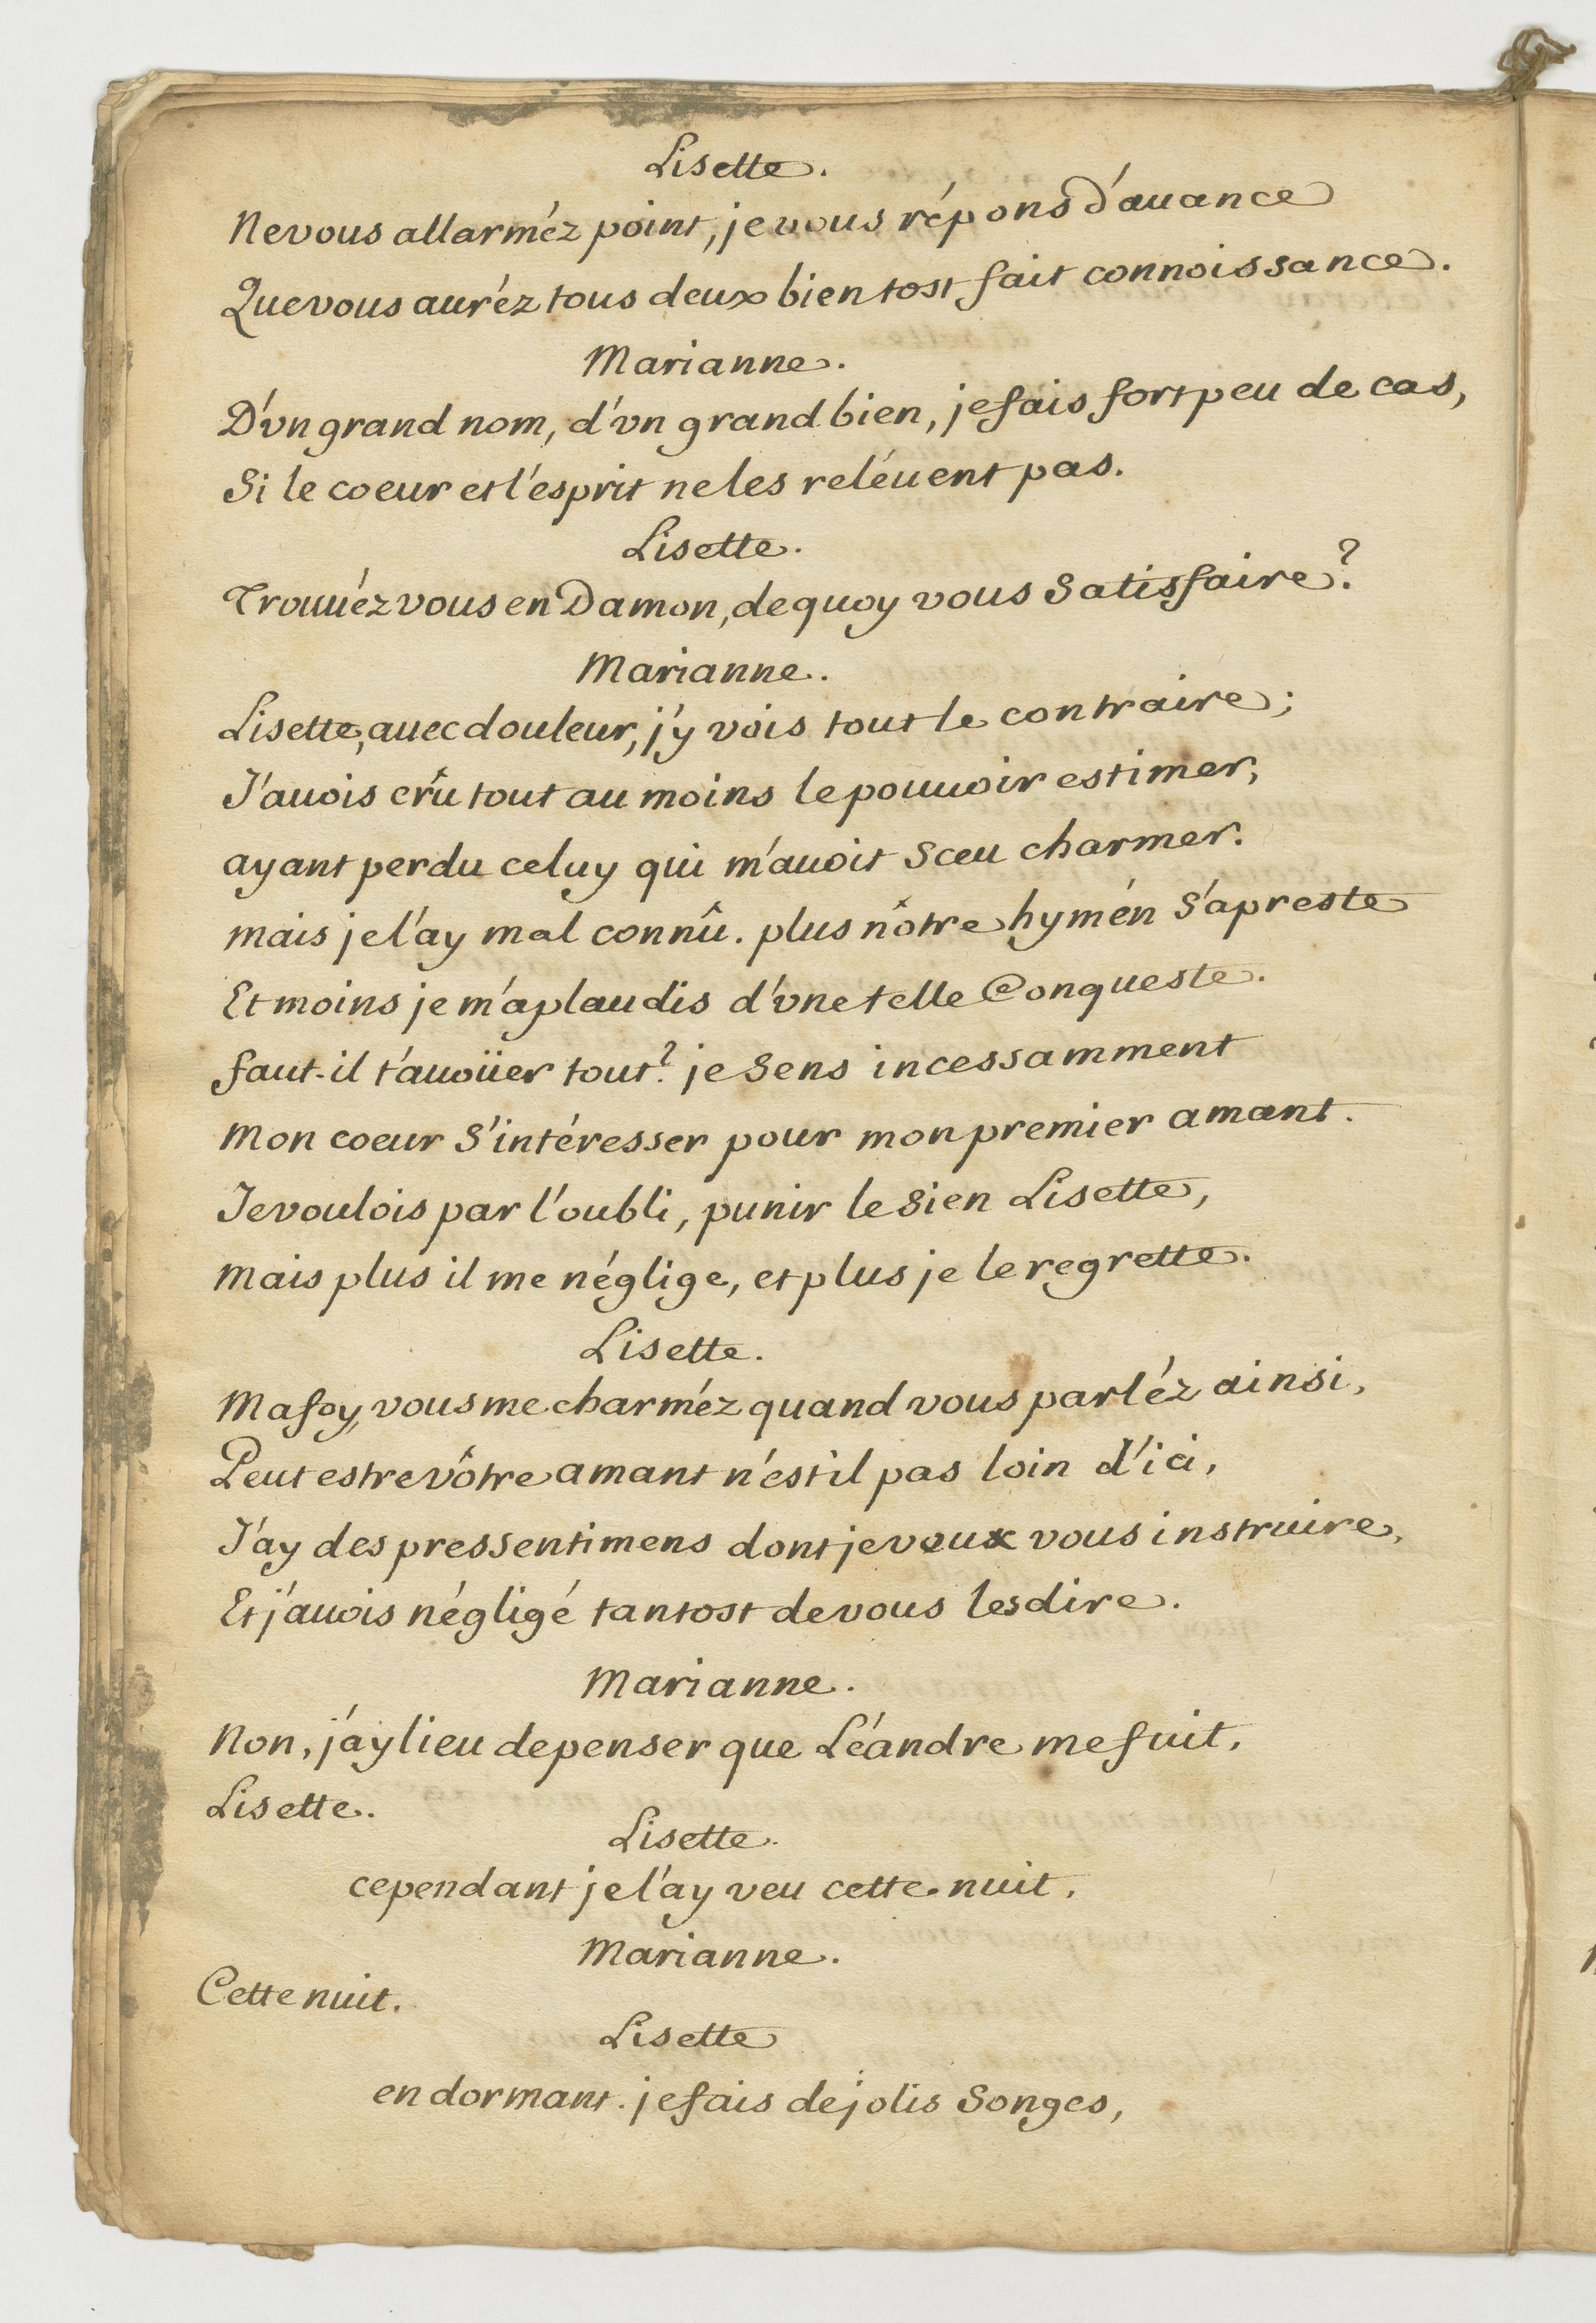 Lisette.
Ne vous allarméz point, je vous répons d'auance
Que vous auréz tous deux bien tost fait connoissance.
Marianne.
D'vn grand nom, d'vn grand bien, je fais fort peu de cas,
Si le coeur et l'esprit ne les reléuent pas.
Lisette.
Trouuéz vous en Damon, de quoy vous Satisfaire?
Marianne.
Lisette, auec douleur, j'y vois tout le contraire;
J'auois crû tout au moins le pouuoir estimer,
ayant perdu celuy qui m'auoit Sceu charmer.
mais je l'ay mal connû. plus nôtre hymén S'apreste
Et moins je m'aplaudis d'vne telle Conqueste.
faut-il t'auoüer tout? je Sens incessamment
Mon coeur S'intéresser pour mon premier amant.
Je voulois par l'oubli, punir le Sien Lisette,
Mais plus il me néglige, et plus je le regrette.
Lisette.
Ma foy, vous me charméz quand vous parléz ainsi,
Peut estre vôtre amant n'est il pas loin d'ici,
J'ay des pressentimens dont je veux vous instruire,
Et j'auois négligé tantost de vous les dire.
Marianne.
Non, j'ay lieu de penser que Léandre me fuit,
Lisette.
Lisette.
cependant je l'ay veu cette nuit,
Marianne.
Cette nuit.
Lisette
en dormant. je fais de jolis Songes,